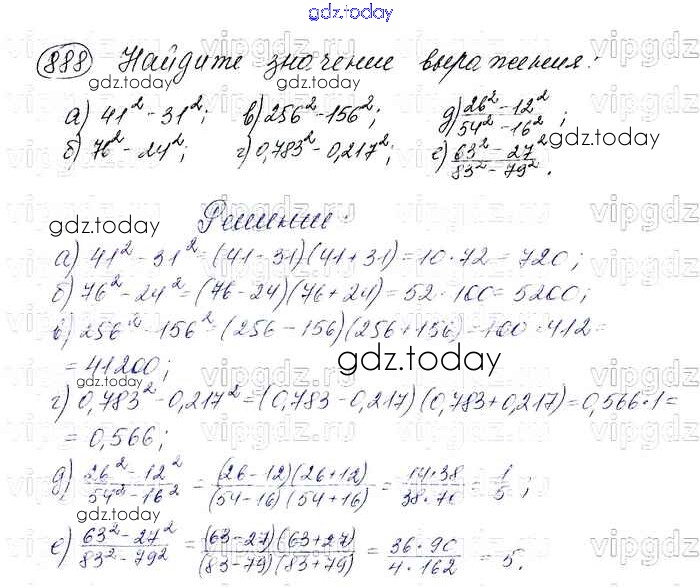 gdz.today
888 Найдите значение выражения:
а) 41² - 31²; в) 256² - 156²; д) (26² - 12²)/(54² - 16²);
б) 76² - 24²; г) 0,783² - 0,217²; е) (63² - 27²)/(83² - 79²).
gdz.today
gdz.today
gdz.today
Решение:
а) 41² - 31² = (41 - 31)(41 + 31) = 10 · 72 = 720;
б) 76² - 24² = (76 - 24)(76 + 24) = 52 · 100 = 5200;
в) 256² - 156² = (256 - 156)(256 + 156) = 100 · 412 =
= 41200;
gdz.today
gdz.today
г) 0,783² - 0,217² = (0,783 - 0,217)(0,783 + 0,217) = 0,566 · 1 =
= 0,566;
д) (26² - 12²)/(54² - 16²) = ((26 - 12)(26 + 12))/((54 - 16)(54 + 16)) = (14 · 38)/(38 · 70) = 1/5;
е) (63² - 27²)/(83² - 79²) = ((63 - 27)(63 + 27))/((83 - 79)(83 + 79)) = (36 · 90)/(4 · 162) = 5.